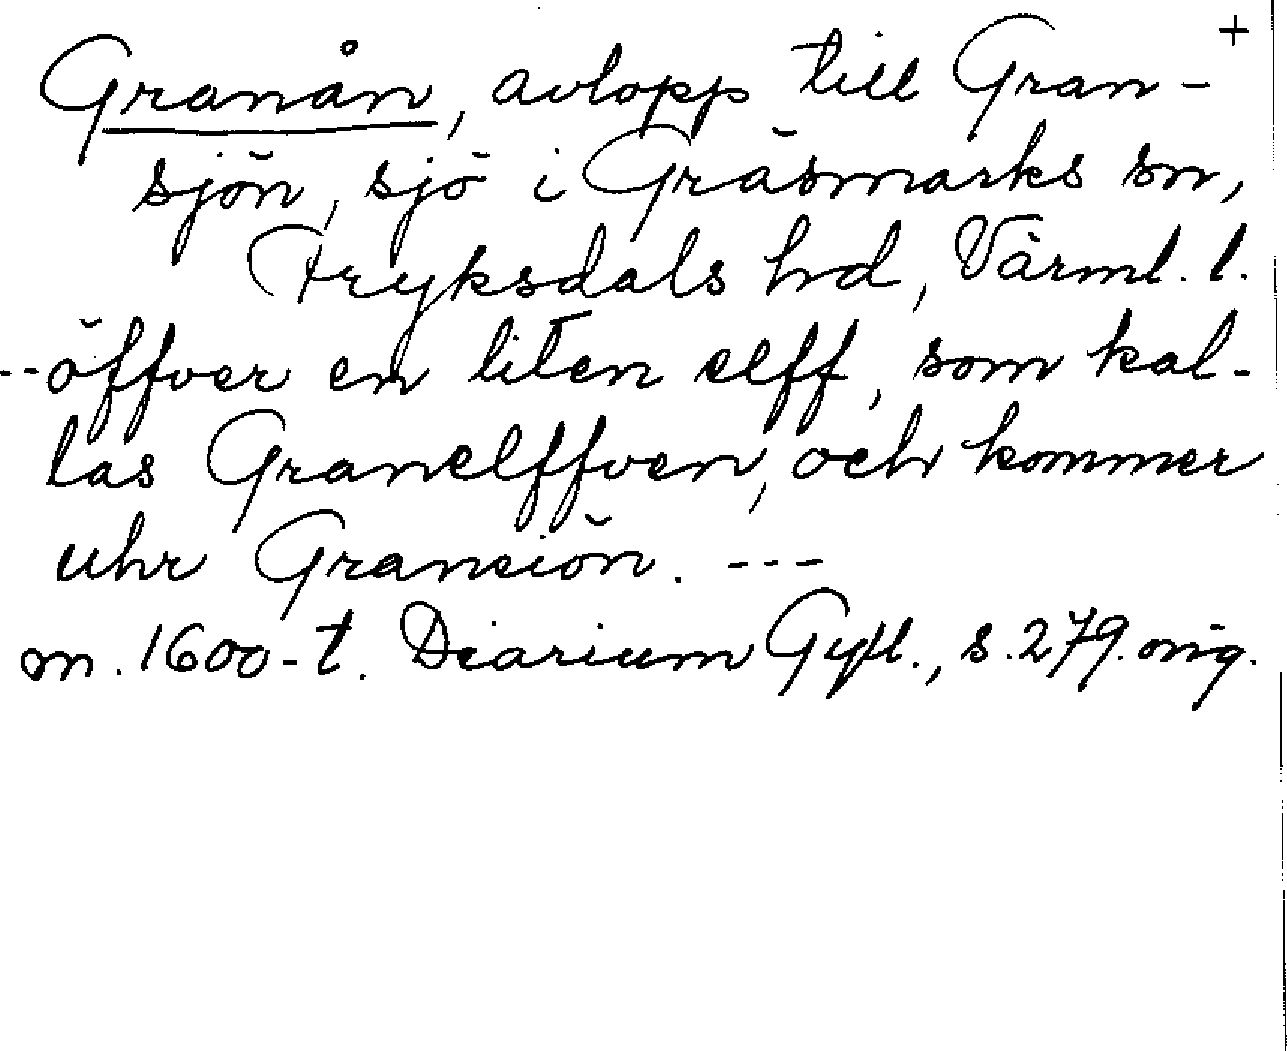 +
Granån, avlopp till Gran-
sjön, sjö i Gräsmarks sn,
Fryksdals hd, Värml. l.
--öffver en liten elff, som kal-
las Granelffven, och kommer
uhr Gransiön. ---
m. 1600-t. Diarium Gyll., s. 279. orig.